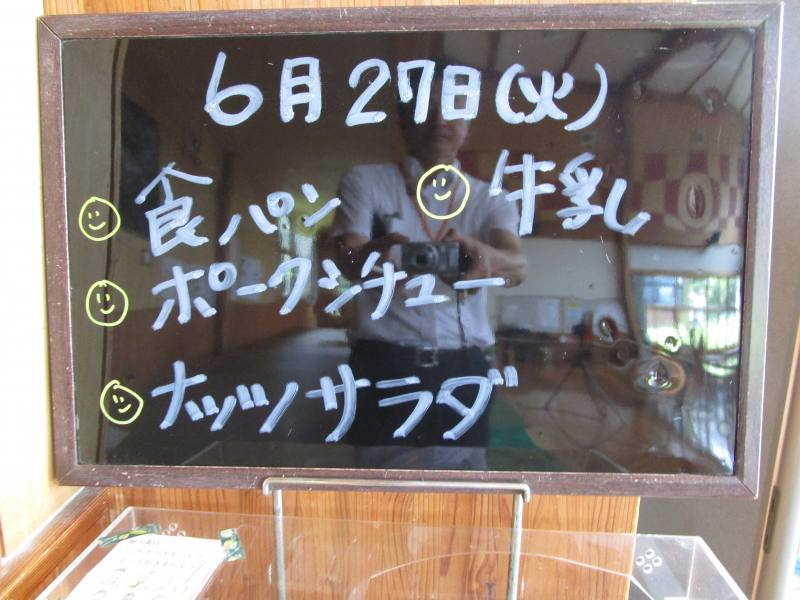 6月27日(火)
食パン 牛乳
ポークシチュー
ナッツサラダ